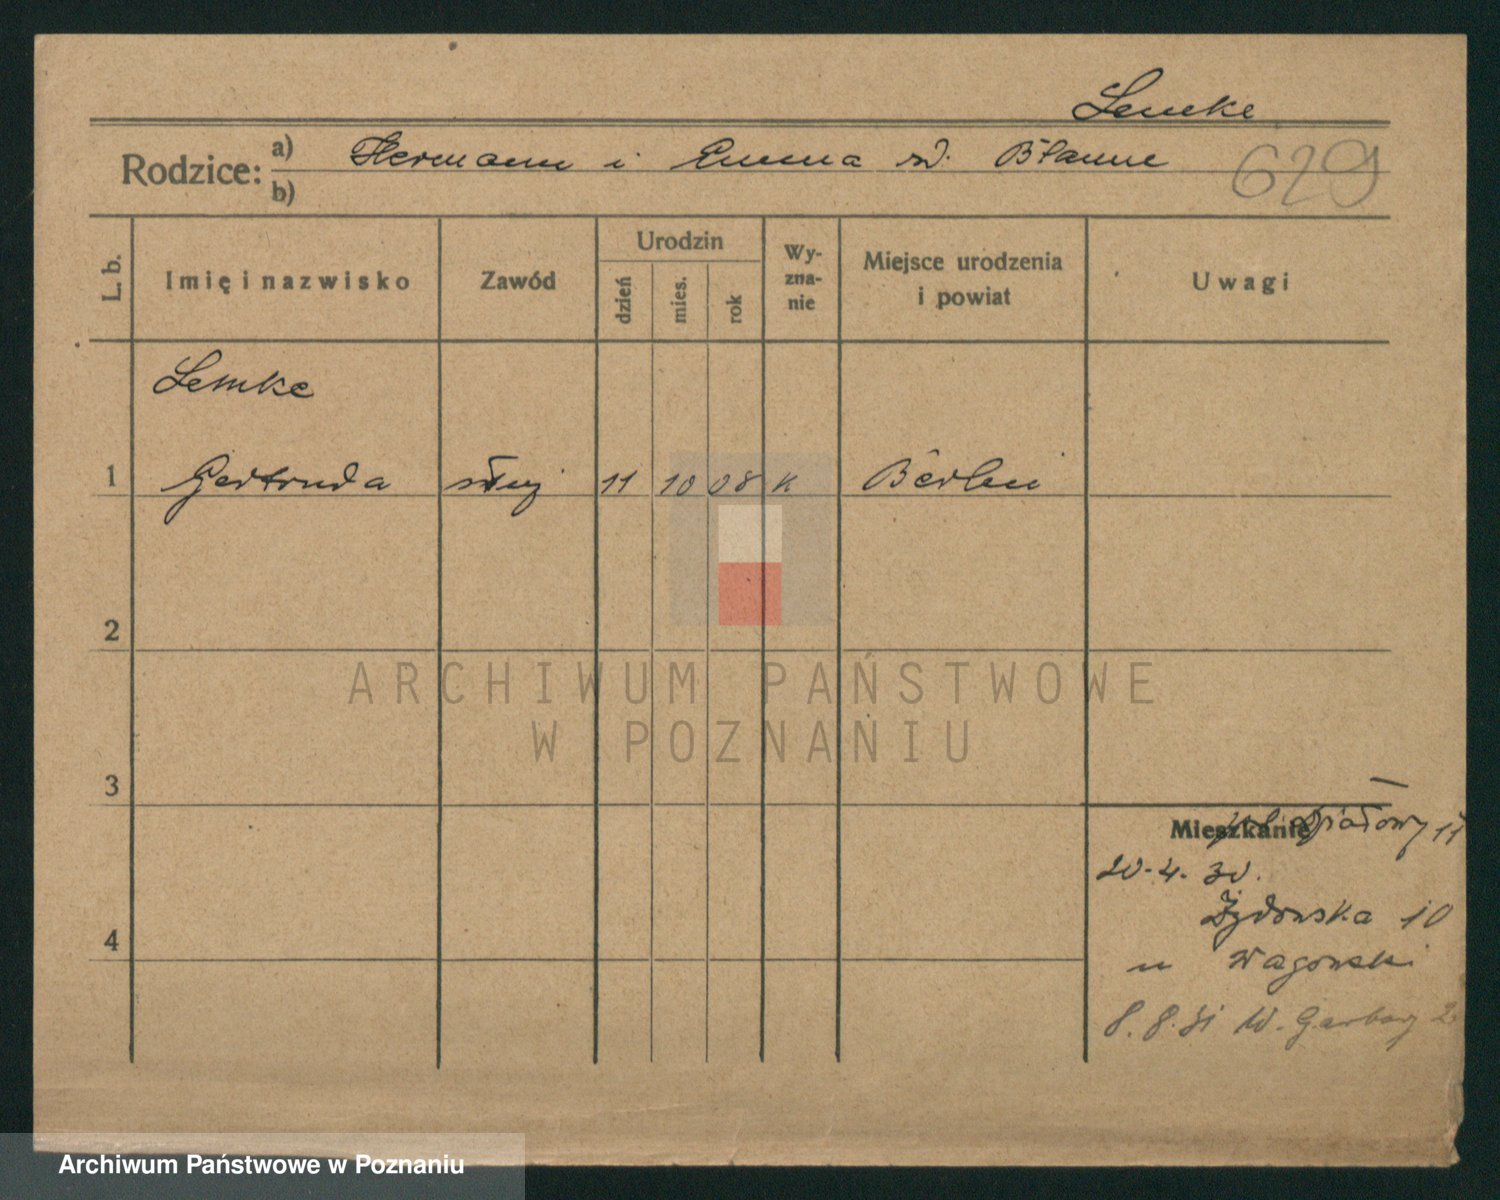 Lemke
Rodzice: a) Hermann i Emma
b)
629
L. b.
Imię i nazwisko
Zawód
Urodzin
dzień
mies.
rok
Wy-
zna-
nie
Miejsce urodzenia
i powiat
Uwagi
Lemke
1 Gertruda służ 11 10 08 k Berlin
2
3
4
ARCHIWUM PAŃSTWOWE
W POZNANIU
Mieszkanie
Działowy 11
20.4.30.
Żydowska 10
u Wagowski
8.8.31 W. Garbary 2
Archiwum Państwowe w Poznaniu